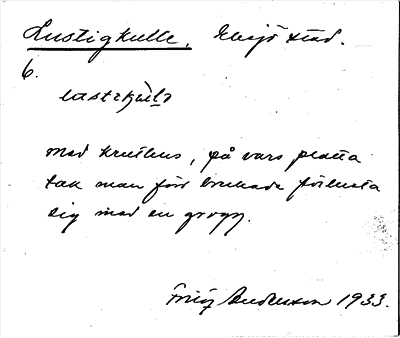 Lustigkulle, Eksjö stad.
6.
med kruthus, på vars platta
tak man förr brukade förlusta
sig med en grogg.
Fritz Andersson 1933.